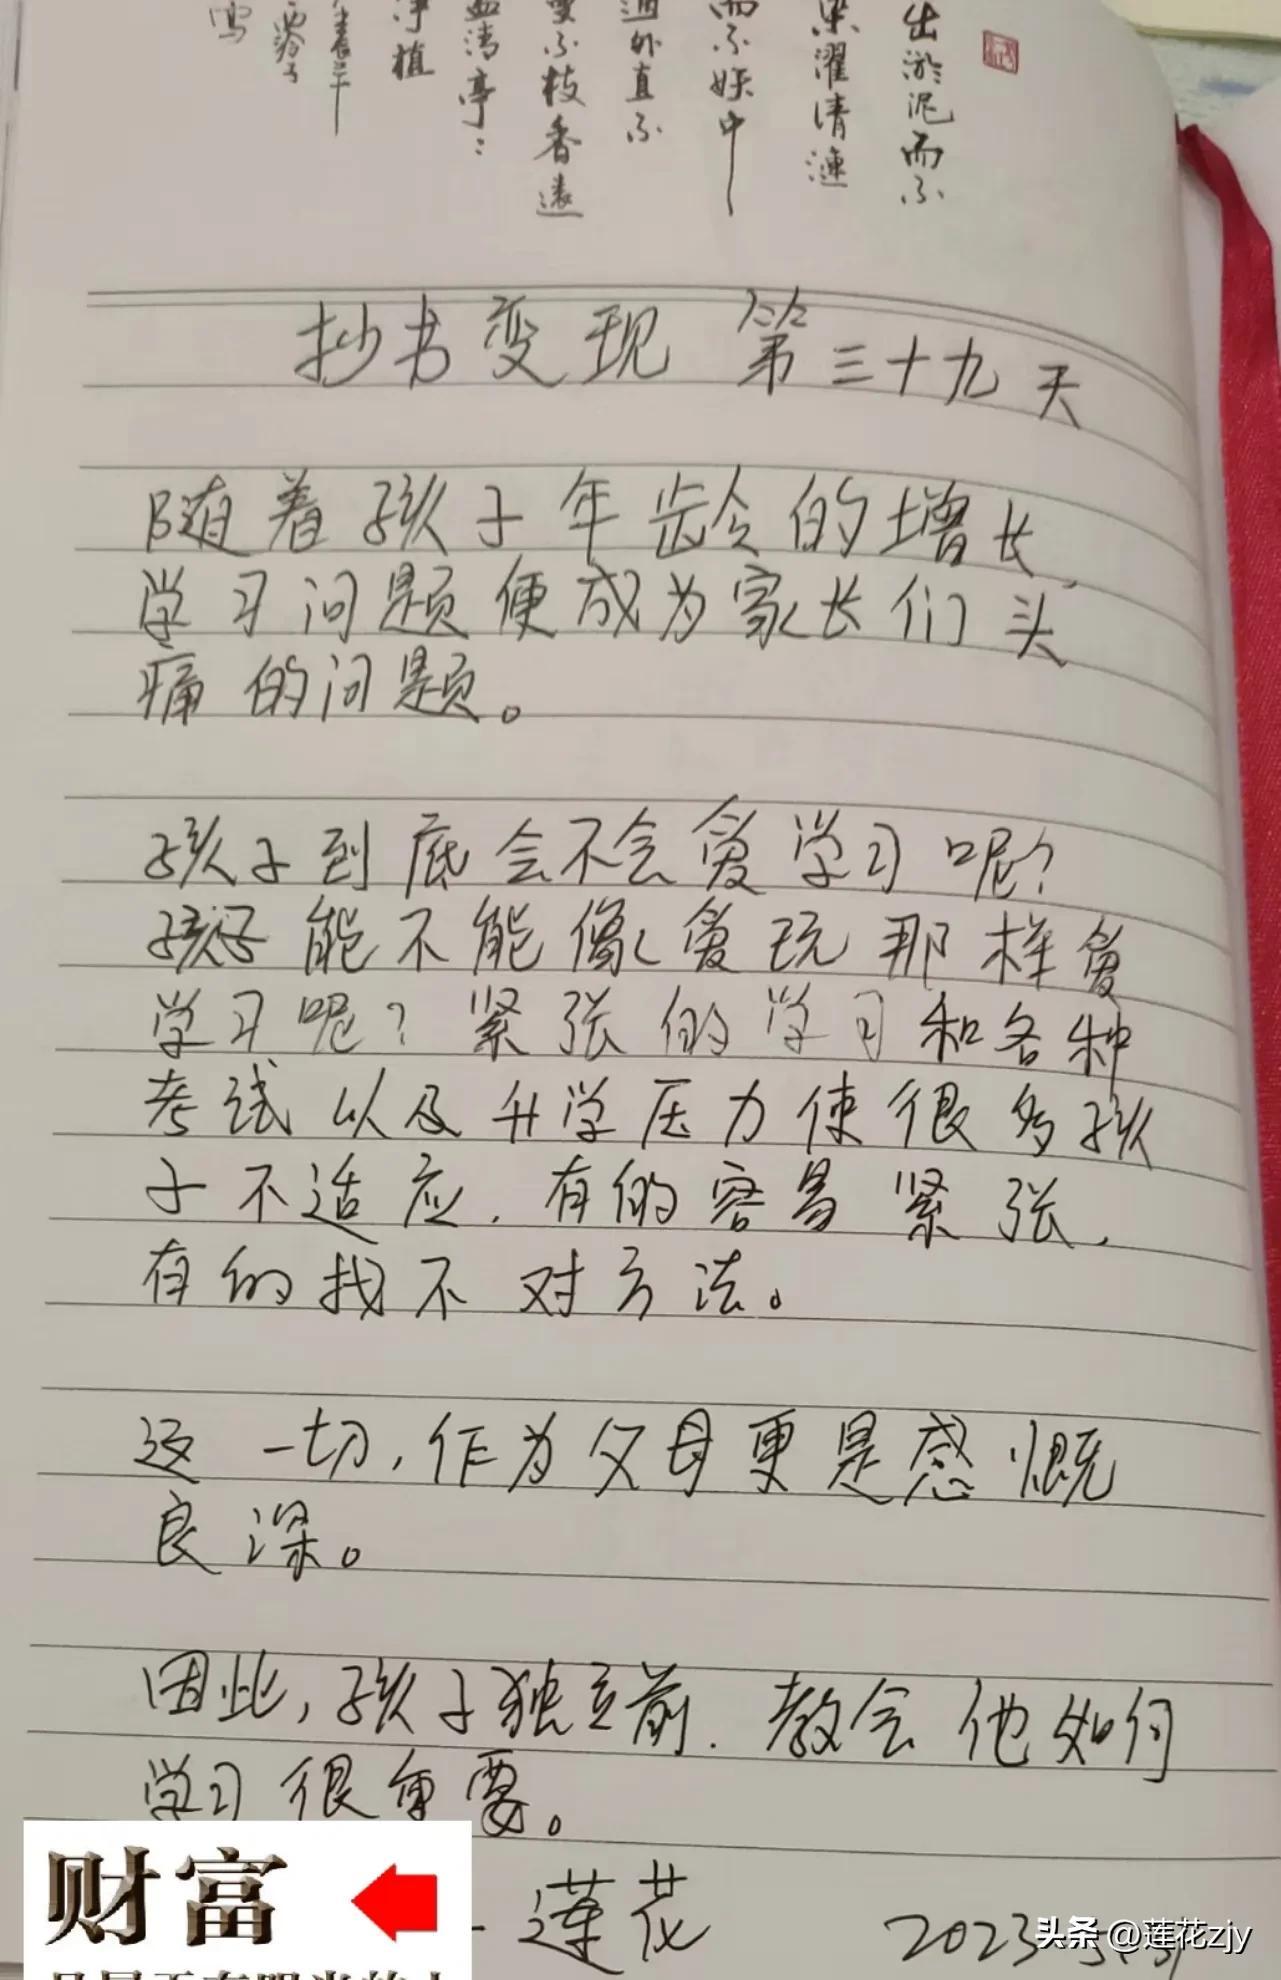 出淤泥而不
染濯清漣
而不妖中
通外直不
蔓不枝香遠
益清亭:
淨植
抄书变现 第三十九天
随着孩子年龄的增长,
学习问题便成为家长们头
痛的问题。
孩子到底会不会爱学习呢?
孩子能不能像爱玩那样爱
学习呢?紧张的学习和各种
考试以及升学压力使很多孩
子不适应,有的容易紧张,
有的找不对方法。
这一切,作为父母更是感慨
良深。
因此,孩子独立前,教会他如何
学习很重要。
-莲花 2023
财富
头条@莲花zjy